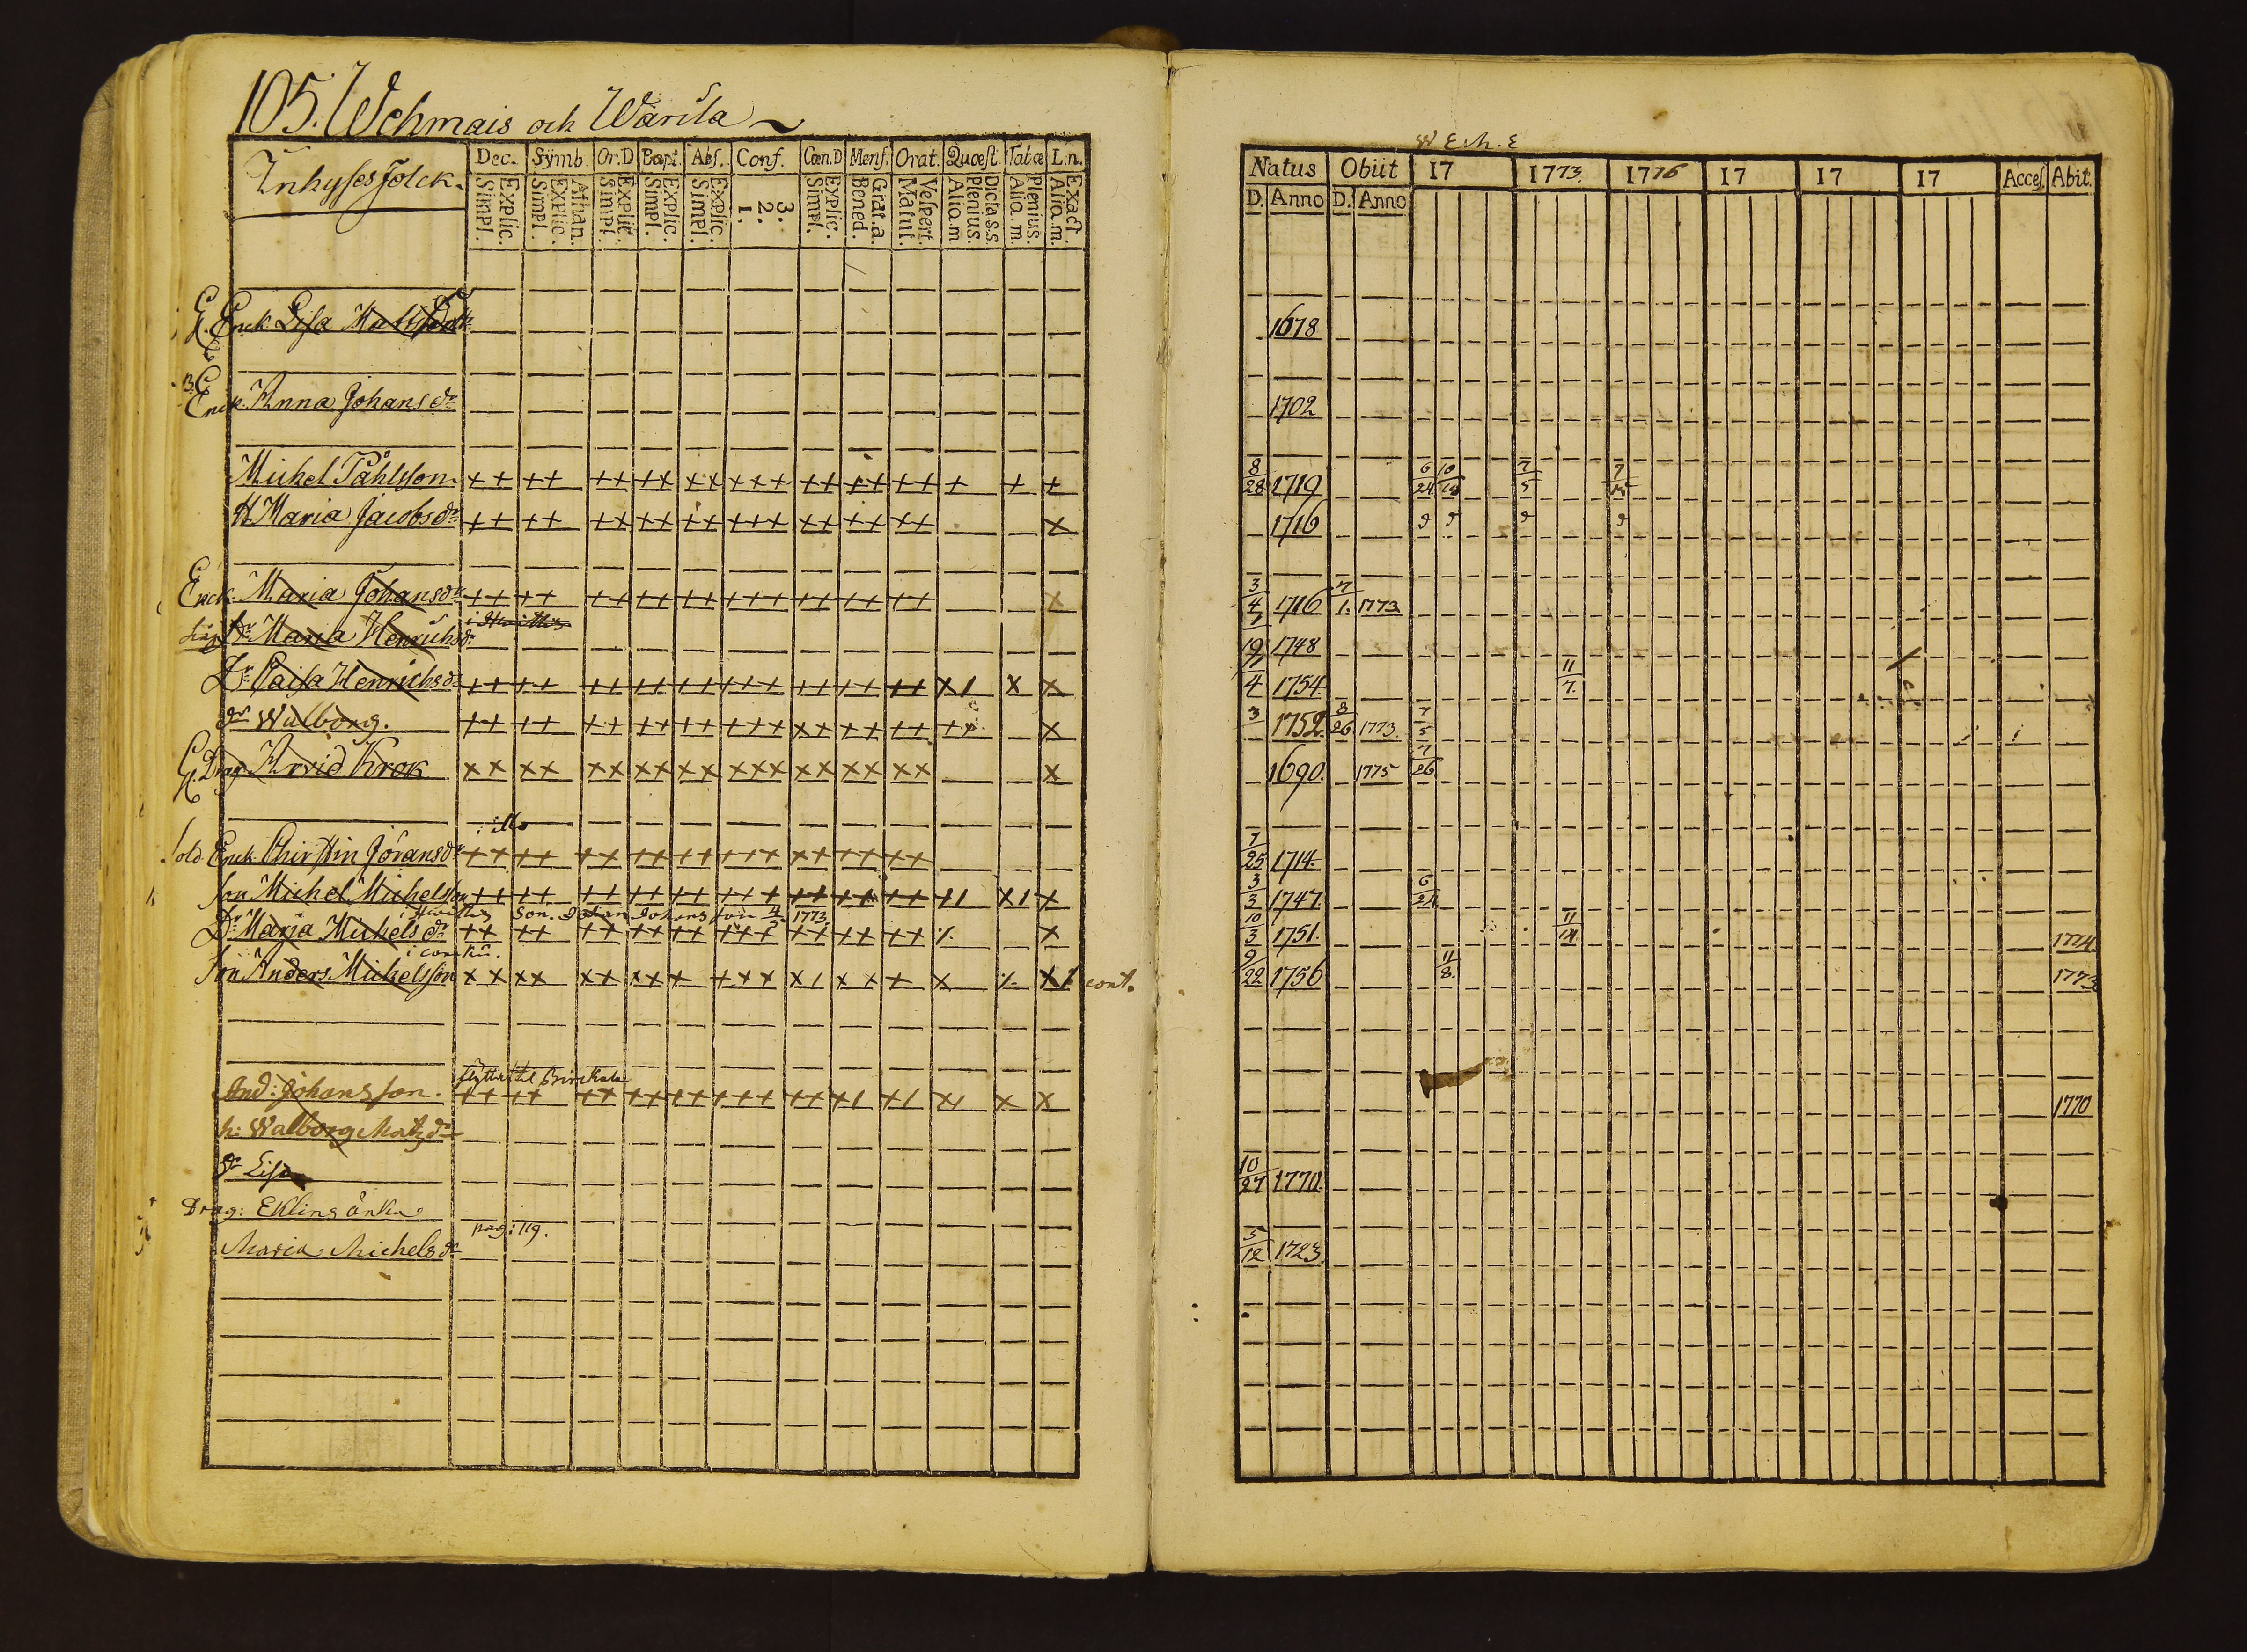 105. Wehmais och Warila
Inhyses folck.
Dec. Symb. Or.D Bapt. Abs. Conf. Cœn.D Mens. Orat. Quæst Tabæ L.n.
Simpl. Explic. Simpl. Explic. Athan. Simpl. Explic. Simpl. Explic. Simpl. Explic. 1. 2. 3. Simpl. Explic. Bened. Grat.a. Matut. Vespert. Aliq.m Plenius. Dicta s.s. Aliq.m. Plenius. Aliq.m. Exact.
Enck. Lisa Matts
Enck. Anna Johans dr
Michel Påhlsson ++ ++ ++ ++ ++ +++ ++ ++ ++ + + +
H. Maria Jacobs dr ++ ++ ++ ++ ++ +++ ++ ++ ++ x
Enck. Maria Johansdr ++ ++ ++ ++ ++ +++ ++ ++ ++ x
Dr Maria Henrichsdr
Dr Caisa Henrichsdr ++ ++ ++ ++ ++ +++ ++ ++ ++ x x x
dr Walborg. ++ ++ ++ ++ ++ +++ ++ ++ ++ ++ x
Drag Arvid Krok xx xx xx xx xx xxx xx xx xx x
Sold. Enck. Chirstin Jöransdr ++ ++ ++ ++ ++ +++ ++ ++ ++
Son Michel Michelsson ++ ++ ++ ++ ++ +++ ++ ++ ++
Son. Johan Johansson 1773
Dr Maria Michels dr ++ ++ ++ ++ ++ +++ ++ ++ ++ x
Son Anders Michelsson x x xx xx xx + +++ x/ x x + x cont.
flyttat til Birckala
And: Johansson. ++ ++ ++ ++ ++ +++ ++ x x
h: Walborg Matzdr
dr Lisa
Drag: Eklins änka
pag: 119.
Maria Michelsdr
Natus Obiit 17 1773. 1776 17 17 17 Acces. Abit.
D. Anno D. Anno
1678
1702
8/28 1719 6/24 7/5
1716
3/4 1716 7/1. 1773
1748
4 1754. 11/7.
3 1752. 8/26 1773. 7/5
1690. 1775 7/26
7/25 1714.
3/3 1747. 6/24
10/3 1751. 11/14 1774.
9/22 1756 11/8. 1773
1770
10/27 1770.
5/12 1723.